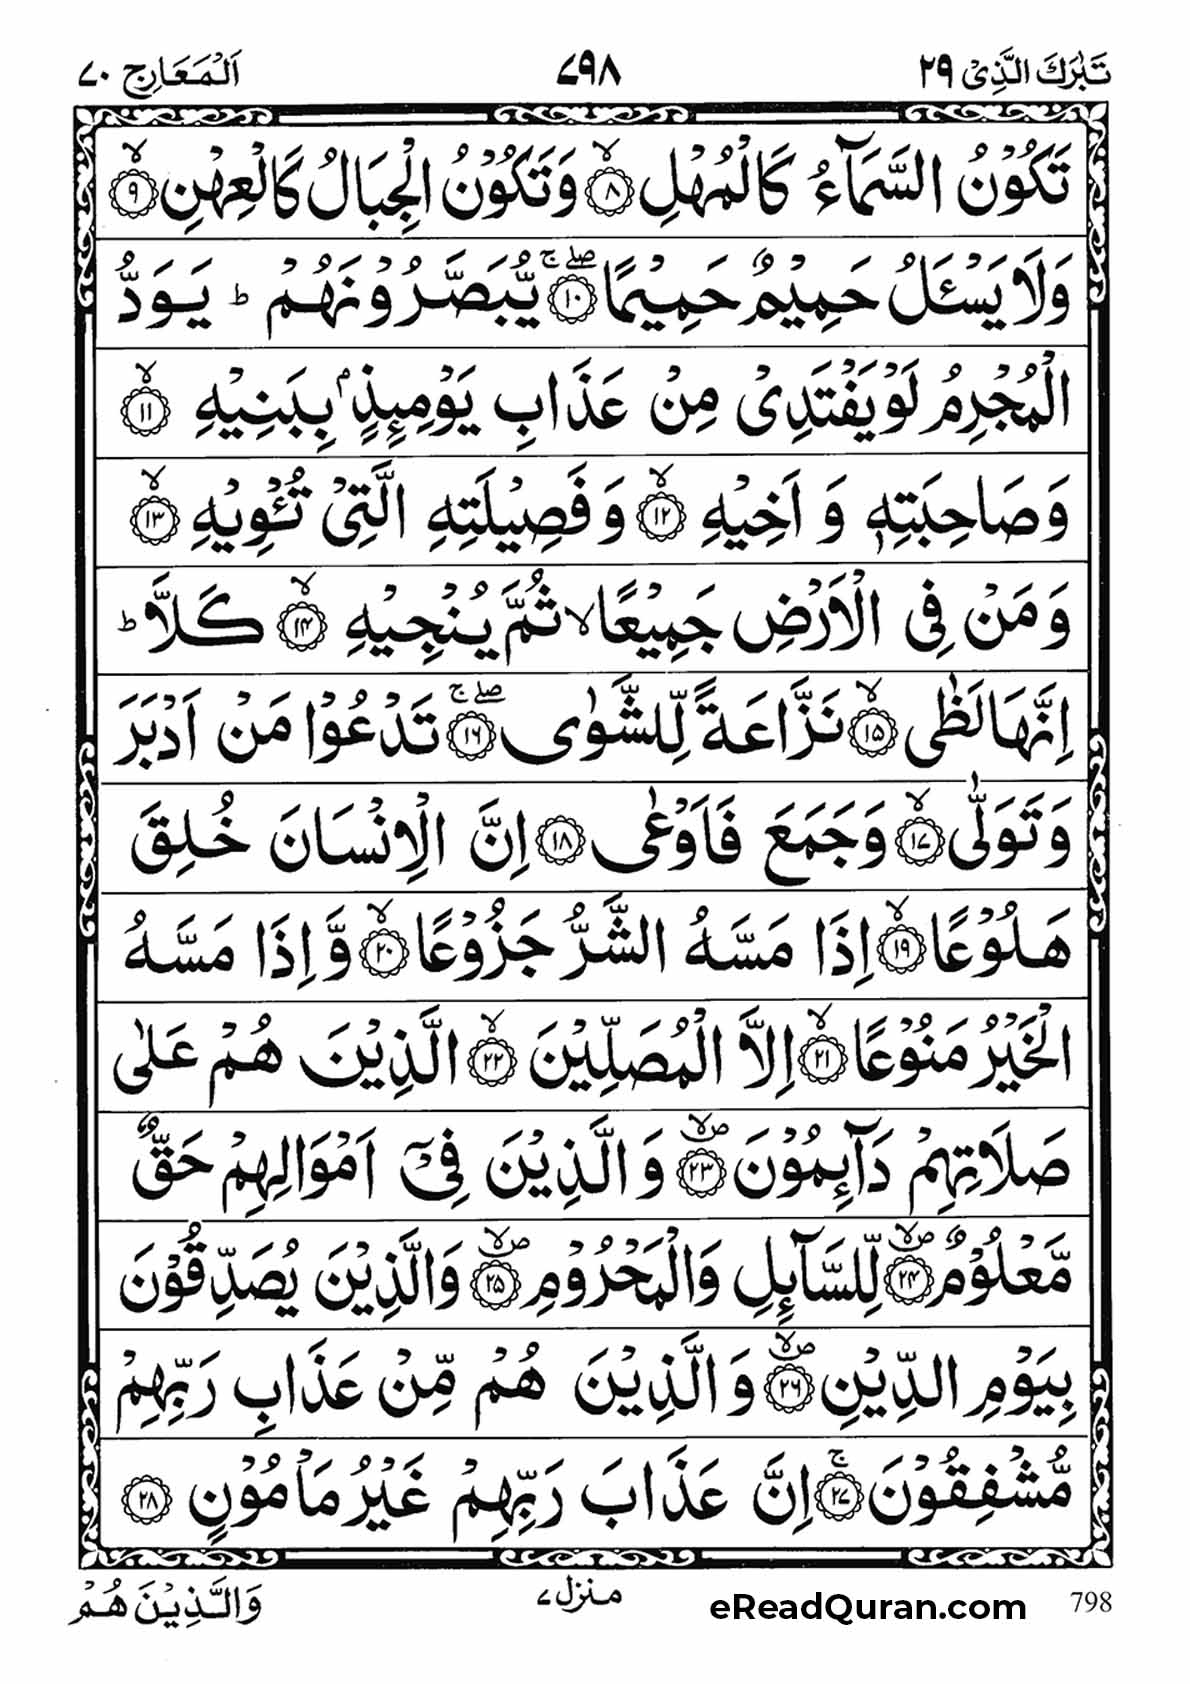 تَبٰرَكَ الَّذِیْ ۲۹ ۷۹۸ اَلْمَعَارِج ۷۰
تَكُوْنُ السَّمَآءُ كَالْمُهْلِ ۙ‏﴿۸﴾ وَتَكُوْنُ الْجِبَالُ كَالْعِهْنِ ۙ‏﴿۹﴾
وَلَا یَسْئَلُ حَمِیْمٌ حَمِیْمًا ۖۚ‏﴿۱۰﴾ یُّبَصَّرُوْنَهُمْ ؕ یَوَدُّ
الْمُجْرِمُ لَوْ یَفْتَدِیْ مِنْ عَذَابِ یَوْمِئِذٍۭ بِبَنِیْهِ ۙ‏﴿۱۱﴾
وَصَاحِبَتِهٖ وَ اَخِیْهِ ۙ‏﴿۱۲﴾ وَ فَصِیْلَتِهِ الَّتِیْ تُئْوِیْهِ ۙ‏﴿۱۳﴾
وَ مَنْ فِی الْاَرْضِ جَمِیْعًا ۙ ثُمَّ یُنْجِیْهِ ۙ‏﴿۱۴﴾ كَلَّا ؕ
اِنَّهَا لَظٰی ۙ‏﴿۱۵﴾ نَزَّاعَةً لِّلشَّوٰی ۖۚ‏﴿۱۶﴾ تَدْعُوْا مَنْ اَدْبَرَ
وَ تَوَلّٰی ۙ‏﴿۱۷﴾ وَجَمَعَ فَاَوْعٰی ‏﴿۱۸﴾ اِنَّ الْاِنْسَانَ خُلِقَ
هَلُوْعًا ۙ‏﴿۱۹﴾ اِذَا مَسَّهُ الشَّرُّ جَزُوْعًا ۙ‏﴿۲۰﴾ وَّ اِذَا مَسَّهُ
الْخَیْرُ مَنُوْعًا ۙ‏﴿۲۱﴾ اِلَّا الْمُصَلِّیْنَ ۙ‏﴿۲۲﴾ الَّذِیْنَ هُمْ عَلٰی
صَلَاتِهِمْ دَآئِمُوْنَ ۪ۙ‏﴿۲۳﴾ وَ الَّذِیْنَ فِیْۤ اَمْوَالِهِمْ حَقٌّ
مَّعْلُوْمٌ ۪ۙ‏﴿۲۴﴾ لِّلسَّآئِلِ وَالْمَحْرُوْمِ ۪ۙ‏﴿۲۵﴾ وَالَّذِیْنَ یُصَدِّقُوْنَ
بِیَوْمِ الدِّیْنِ ۪ۙ‏﴿۲۶﴾ وَ الَّذِیْنَ هُمْ مِّنْ عَذَابِ رَبِّهِمْ
مُّشْفِقُوْنَ ۚ‏﴿۲۷﴾ اِنَّ عَذَابَ رَبِّهِمْ غَیْرُ مَاْمُوْنٍ ‏﴿۲۸﴾
وَالَّذِیْنَ هُمْ منزل ۷ eReadQuran.com 798